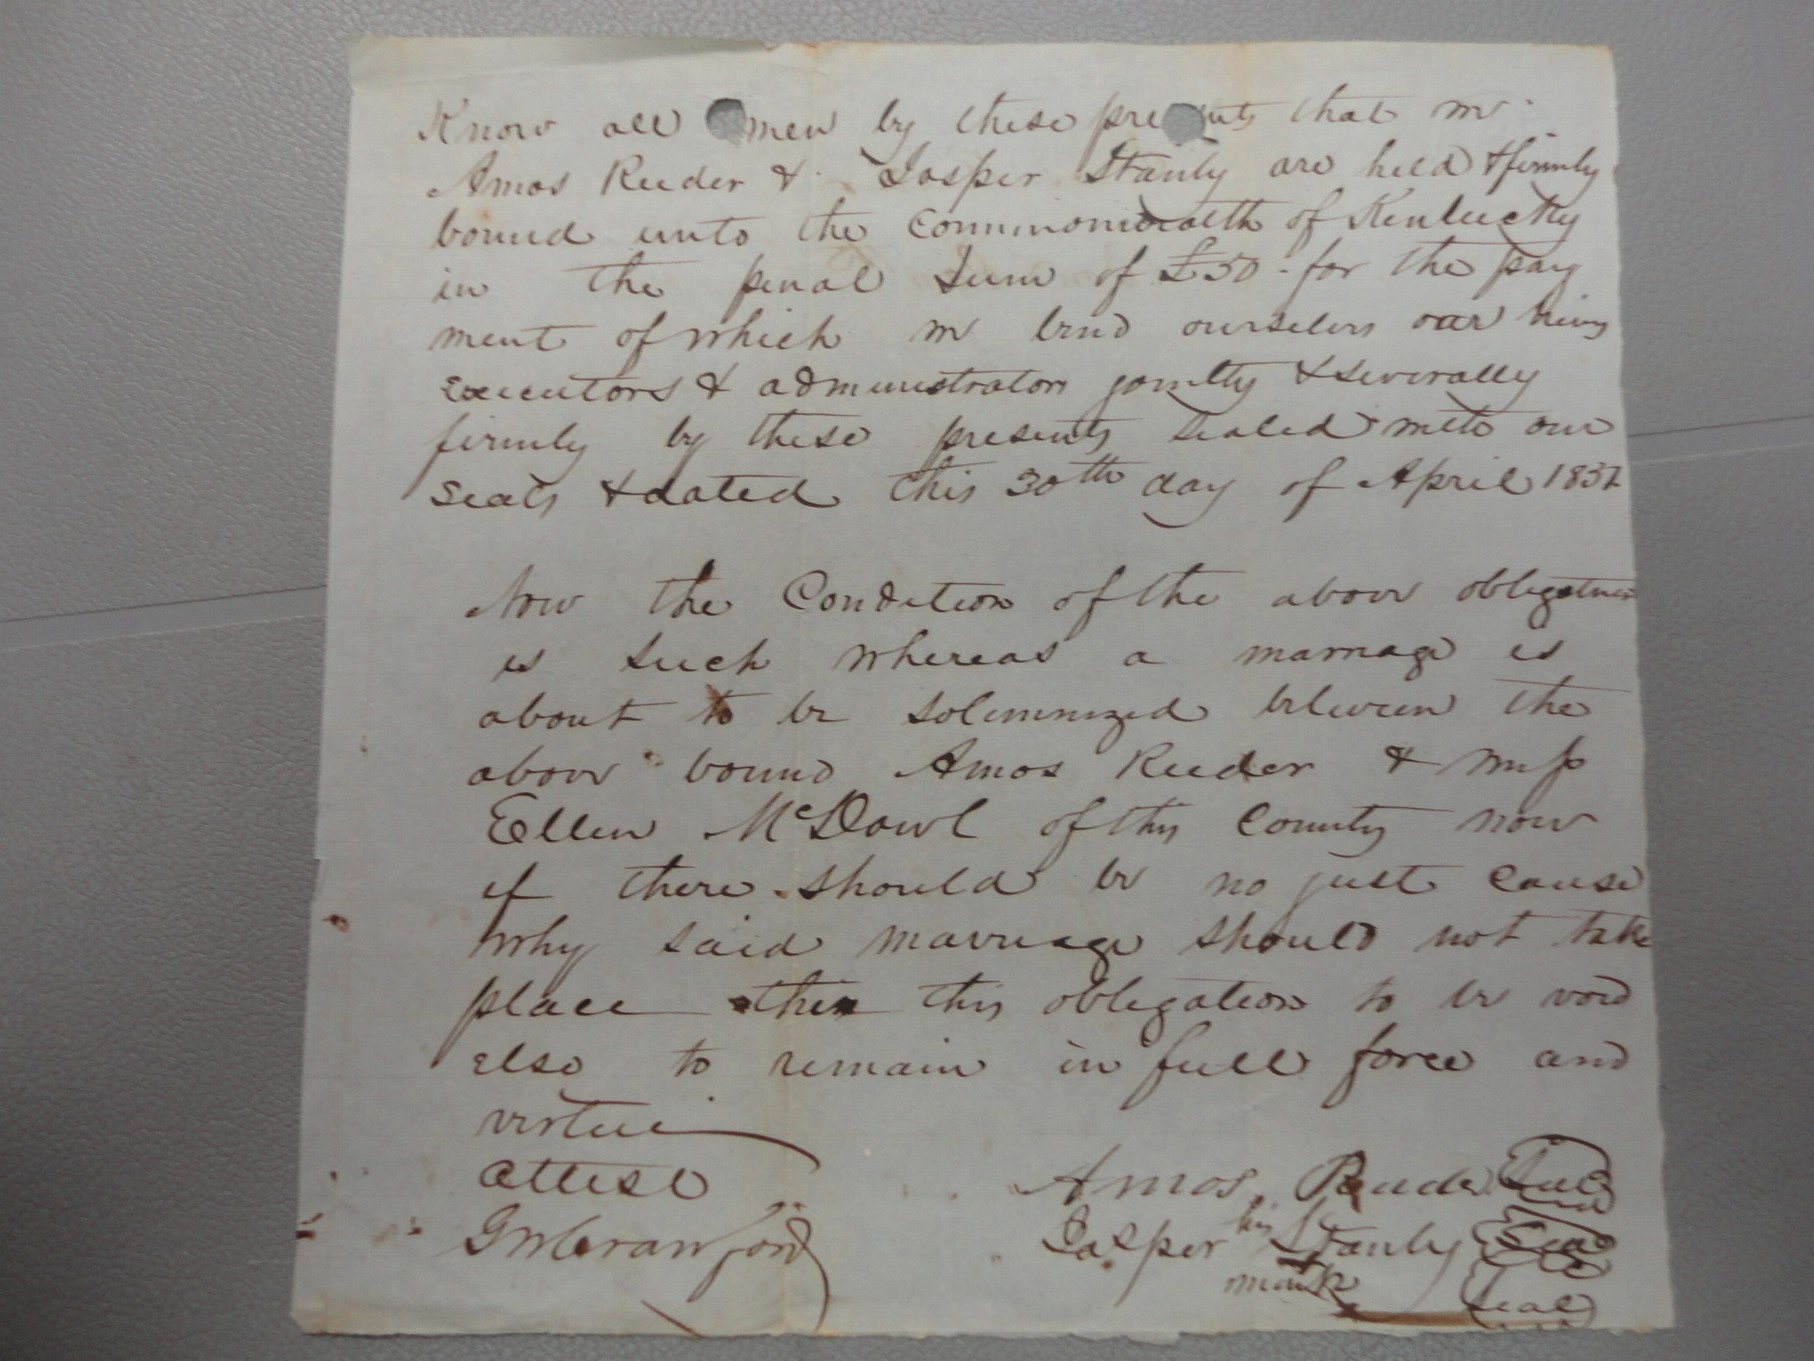 Know all men by these presents that we
Amos Reeder & Jasper Stanly are held & firmly
bound unto the Commonwealth of Kentucky
in the penal Sum of £50 - for the pay
ment of which we bind ourselves our heirs
executors & administrators jointly & severally
firmly by these presents sealed with our
seals & dated this 30th day of April 1852
Now the Condition of the above obligation
is such whereas a marriage is
about to be solemnized between the
above bound Amos Reeder & miss
Ellen McDowl of this County now
if there should be no just cause
why said marriage should not take
place then this obligation to be void
else to remain in full force and
virtue
attest
Amos Reeder Seal
GW Crawford
Jasper his Stanly Seal
mark
Seal